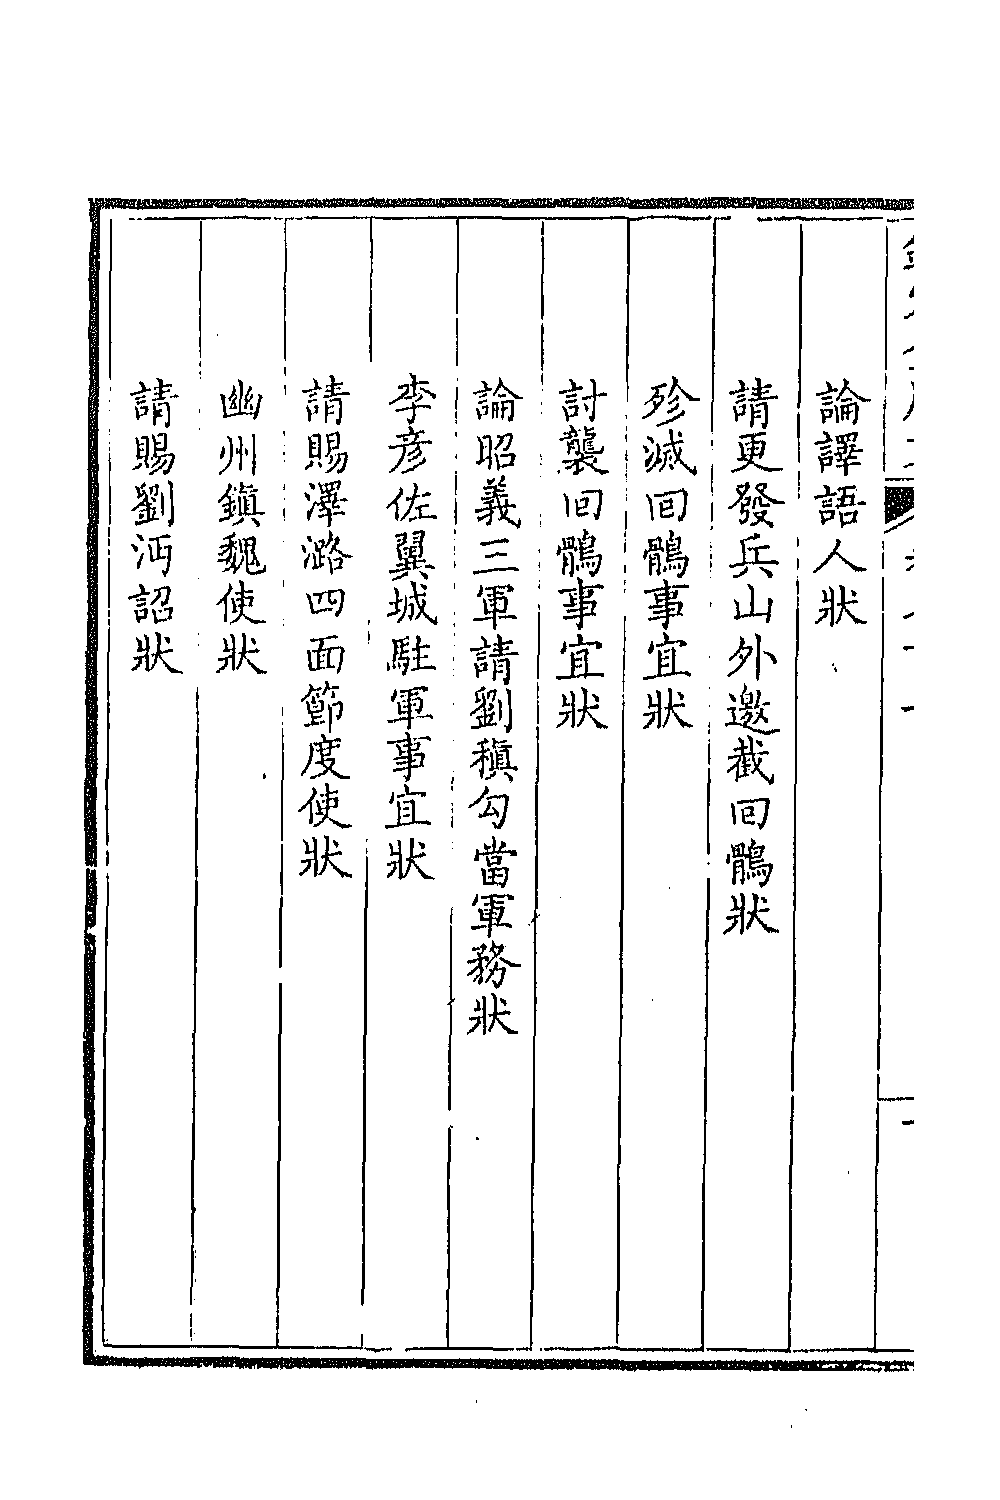 論譯語人狀
請更發兵山外邀截回鶻狀
殄滅回鶻事宜狀
討襲回鶻事宜狀
論昭義三軍請劉稹勾當軍務狀
李彥佐翼城駐軍事宜狀
請賜澤潞四面節度使狀
幽州鎮魏使狀
請賜劉沔詔狀